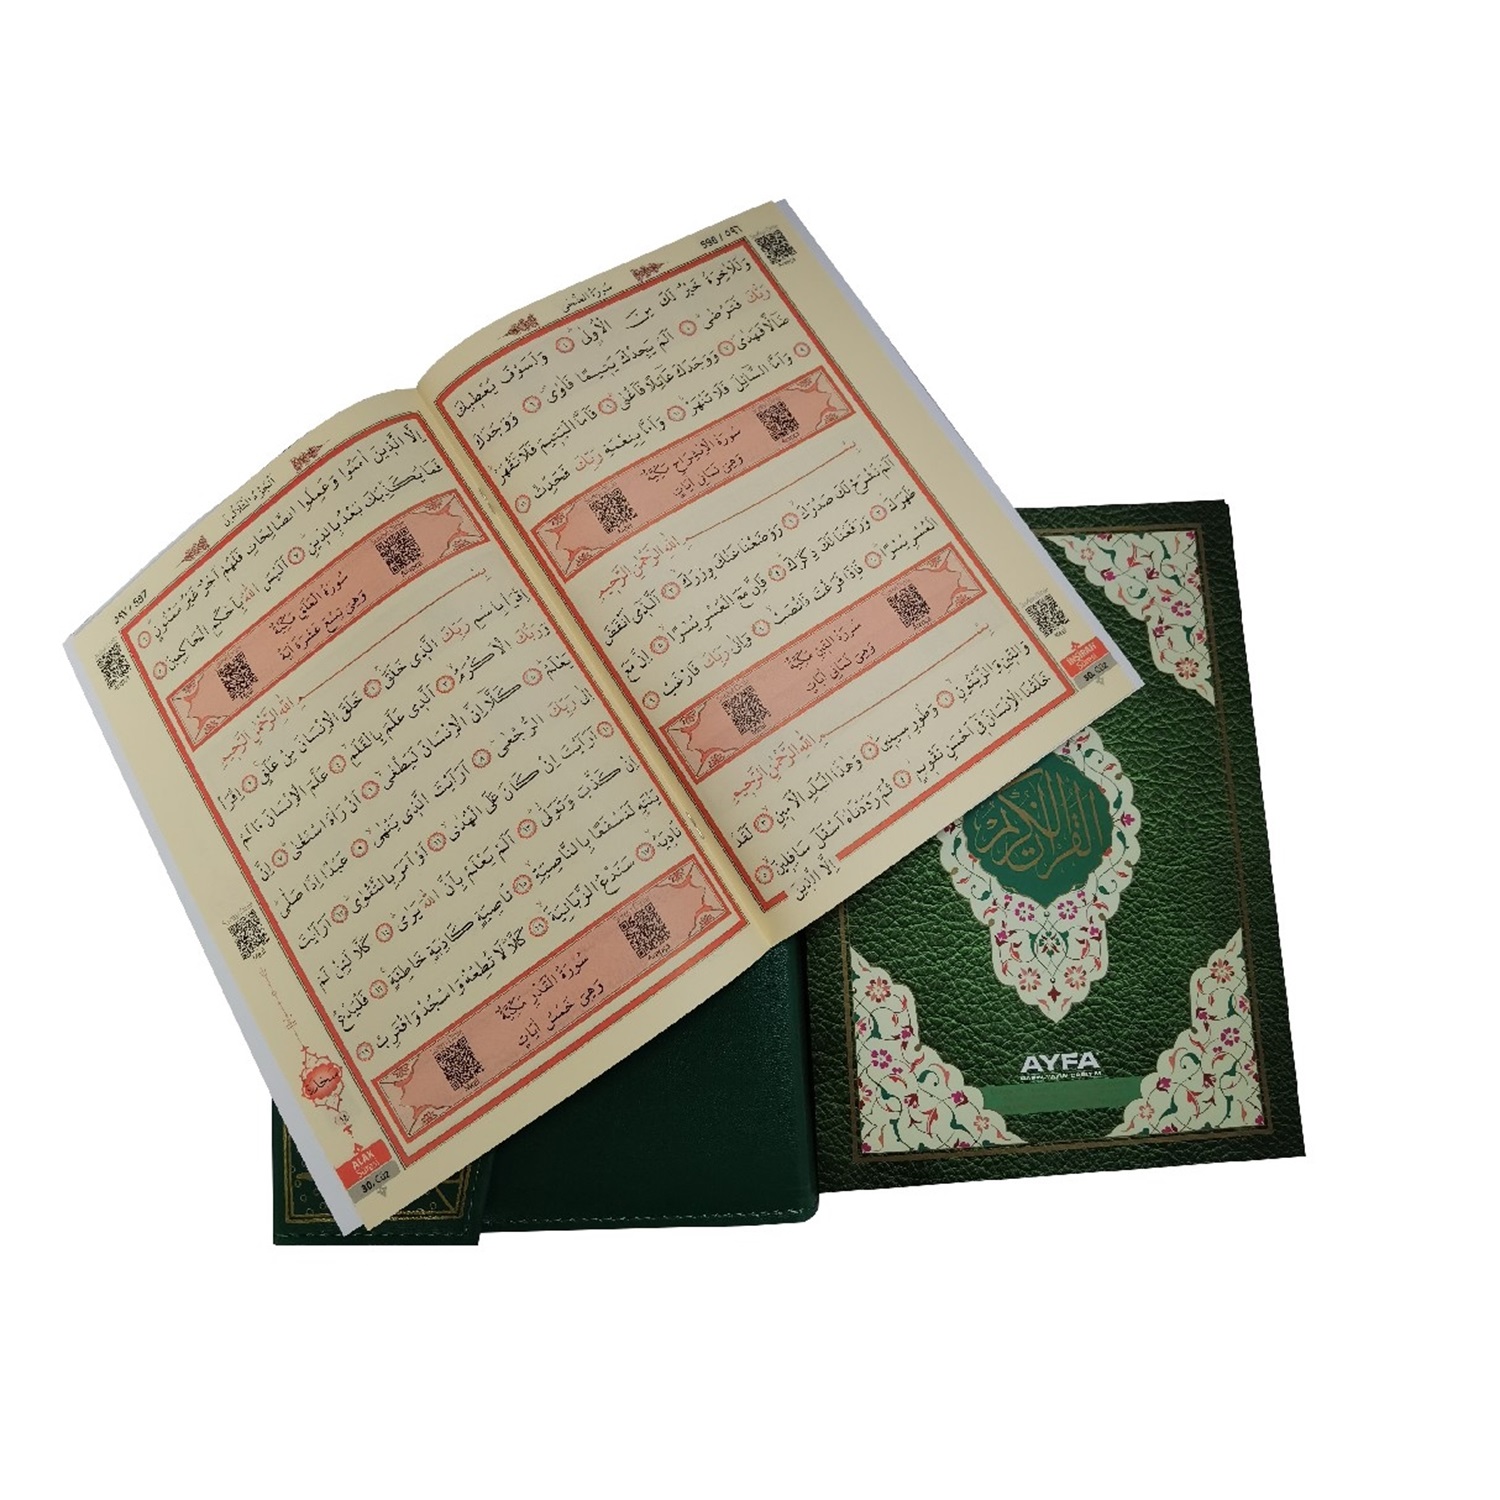 596 / ٥٩٦
سُورَةُ الضُّحٰى
وَلَلْاٰخِرَةُ خَيْرٌ لَكَ مِنَ الْاُو۫لٰىۜ ﴿٤﴾ وَلَسَوْفَ يُعْط۪يكَ
رَبُّكَ فَتَرْضٰىۜ ﴿٥﴾ اَلَمْ يَجِدْكَ يَت۪يمًا فَاٰوٰىۖ ﴿٦﴾ وَوَجَدَكَ
ضَٓالًّا فَهَدٰىۖ ﴿٧﴾ وَوَجَدَكَ عَٓائِلًا فَاَغْنٰىۜ ﴿٨﴾ فَاَمَّا الْيَت۪يمَ فَلَا تَقْهَرْۜ
﴿٩﴾ وَاَمَّا السَّٓائِلَ فَلَا تَنْهَرْۜ ﴿١٠﴾ وَاَمَّا بِنِعْمَةِ رَبِّكَ فَحَدِّثْ ﴿١١﴾
سُورَةُ الْاِنْشِرَاحِ مَكِّيَّةٌ
وَهِيَ ثَمَانِي اٰيَاتٍ
بِسْمِ اللّٰهِ الرَّحْمٰنِ الرَّح۪يمِ
اَلَمْ نَشْرَحْ لَكَ صَدْرَكَۙ ﴿١﴾ وَوَضَعْنَا عَنْكَ وِزْرَكَۙ ﴿٢﴾ اَلَّذ۪ٓي اَنْقَضَ
ظَهْرَكَۙ ﴿٣﴾ وَرَفَعْنَا لَكَ ذِكْرَكَۜ ﴿٤﴾ فَاِنَّ مَعَ الْعُسْرِ يُسْرًاۙ ﴿٥﴾ اِنَّ مَعَ
الْعُسْرِ يُسْرًاۜ ﴿٦﴾ فَاِذَا فَرَغْتَ فَانْصَبْۙ ﴿٧﴾ وَاِلٰى رَبِّكَ فَارْغَبْ ﴿٨﴾
سُورَةُ التّ۪ينِ مَكِّيَّةٌ
وَهِيَ ثَمَانِي اٰيَاتٍ
بِسْمِ اللّٰهِ الرَّحْمٰنِ الرَّح۪يمِ
وَالتّ۪ينِ وَالزَّيْتُونِۙ ﴿١﴾ وَطُورِ س۪ين۪ينَۙ ﴿٢﴾ وَهٰذَا الْبَلَدِ الْاَم۪ينِۙ ﴿٣﴾ لَقَدْ
خَلَقْنَا الْاِنْسَانَ ف۪ٓي اَحْسَنِ تَقْو۪يمٍۘ ﴿٤﴾ ثُمَّ رَدَدْنَاهُ اَسْفَلَ سَافِل۪ينَۙ ﴿٥﴾
اِلَّا الَّذ۪ينَ
İNŞİRAH
Suresi
30. Cüz
٥٩٧ / 597
اَلْجُزْءُ الثَّلَاثُونَ
اِلَّا الَّذ۪ينَ اٰمَنُوا وَعَمِلُوا الصَّالِحَاتِ فَلَهُمْ اَجْرٌ غَيْرُ مَمْنُونٍۜ ﴿٦﴾
فَمَا يُكَذِّبُكَ بَعْدُ بِالدّ۪ينِۜ ﴿٧﴾ اَلَيْسَ اللّٰهُ بِاَحْكَمِ الْحَاكِم۪ينَ ﴿٨﴾
سُورَةُ الْعَلَقِ مَكِّيَّةٌ
وَهِيَ تِسْعَ عَشْرَةَ اٰيَةً
بِسْمِ اللّٰهِ الرَّحْمٰنِ الرَّح۪يمِ
اِقْرَأْ بِاسْمِ رَبِّكَ الَّذ۪ي خَلَقَۚ ﴿١﴾ خَلَقَ الْاِنْسَانَ مِنْ عَلَقٍۚ ﴿٢﴾ اِقْرَأْ
وَرَبُّكَ الْاَكْرَمُۙ ﴿٣﴾ اَلَّذ۪ي عَلَّمَ بِالْقَلَمِۙ ﴿٤﴾ عَلَّمَ الْاِنْسَانَ مَا لَمْ
يَعْلَمْۜ ﴿٥﴾ كَلَّٓا اِنَّ الْاِنْسَانَ لَيَطْغٰىۙ ﴿٦﴾ اَنْ رَاٰهُ اسْتَغْنٰىۜ ﴿٧﴾ اِنَّ
اِلٰى رَبِّكَ الرُّجْعٰىۜ ﴿٨﴾ اَرَاَيْتَ الَّذ۪ي يَنْهٰىۙ ﴿٩﴾ عَبْدًا اِذَا صَلّٰىۜ
﴿١٠﴾ اَرَاَيْتَ اِنْ كَانَ عَلَى الْهُدٰىۙ ﴿١١﴾ اَوْ اَمَرَ بِالتَّقْوٰىۜ ﴿١٢﴾ اَرَاَيْتَ
اِنْ كَذَّبَ وَتَوَلّٰىۜ ﴿١٣﴾ اَلَمْ يَعْلَمْ بِاَنَّ اللّٰهَ يَرٰىۜ ﴿١٤﴾ كَلَّا لَئِنْ لَمْ
يَنْتَهِ لَنَسْفَعًا بِالنَّاصِيَةِۙ ﴿١٥﴾ نَاصِيَةٍ كَاذِبَةٍ خَاطِئَةٍۚ ﴿١٦﴾ فَلْيَدْعُ
نَادِيَهُۙ ﴿١٧﴾ سَنَدْعُ الزَّبَانِيَةَۙ ﴿١٨﴾ كَلَّاۜ لَا تُطِعْهُ وَاسْجُدْ وَاقْتَرِبْ ﴿١٩﴾
سُورَةُ الْقَدْرِ مَكِّيَّةٌ
وَهِيَ خَمْسُ اٰيَاتٍ
ALAK
Suresi
30. Cüz
القرآن الكريم
AYFA
BASIN YAYIN DAĞITIM